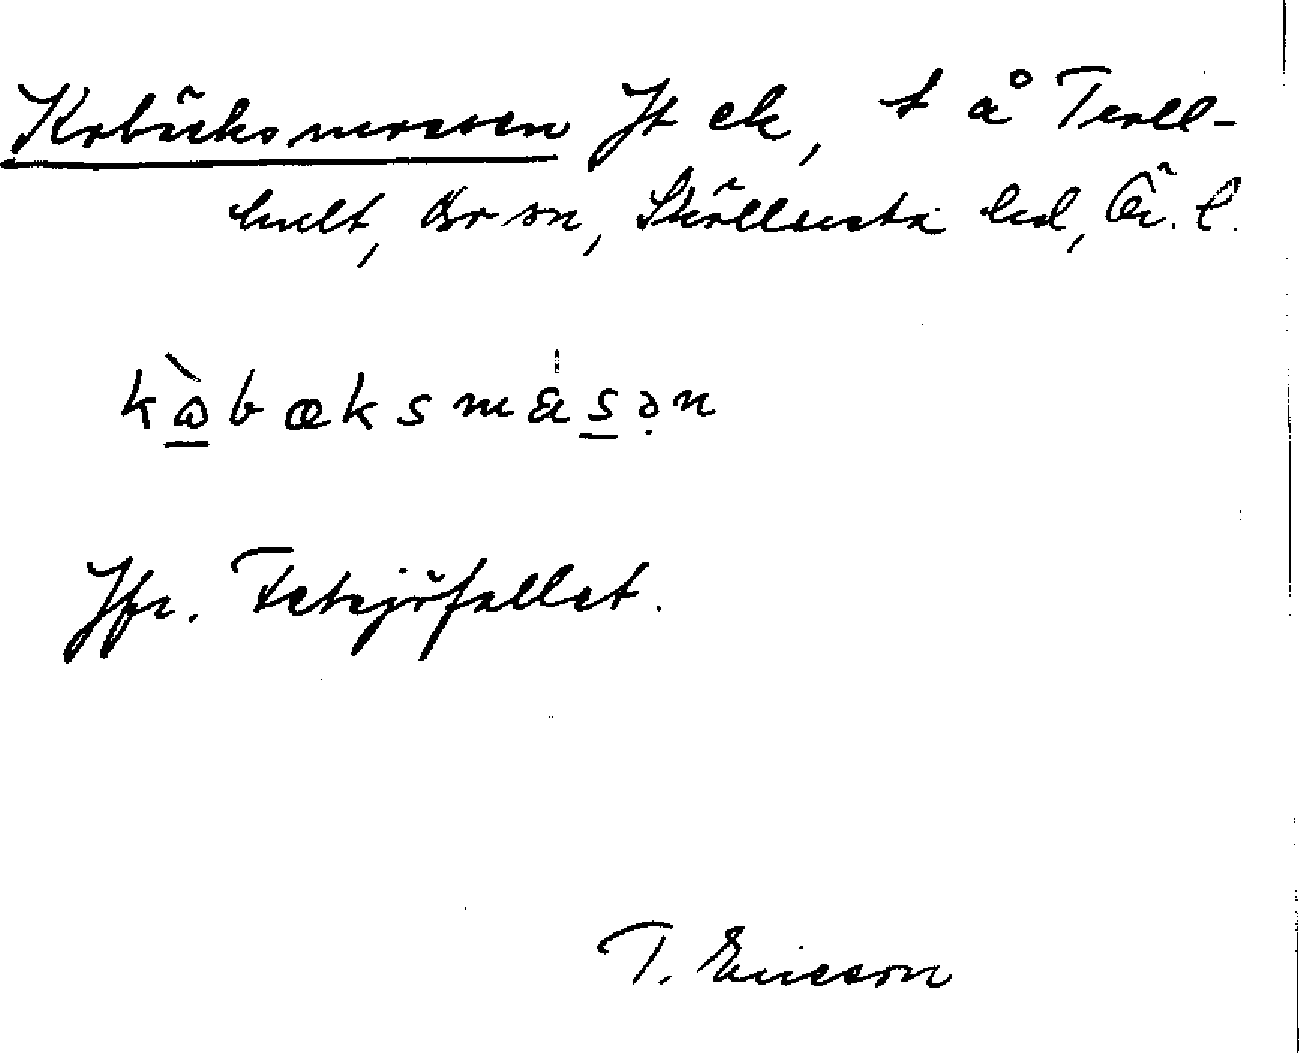 Kobäcksmossen Jt ek, t å Troll-
hult, Bo sn, Sköllersta hd, Ör. l.
kɷ̀bæksmåsən
Jfr. Tetsjöfallet.
T. Ericson